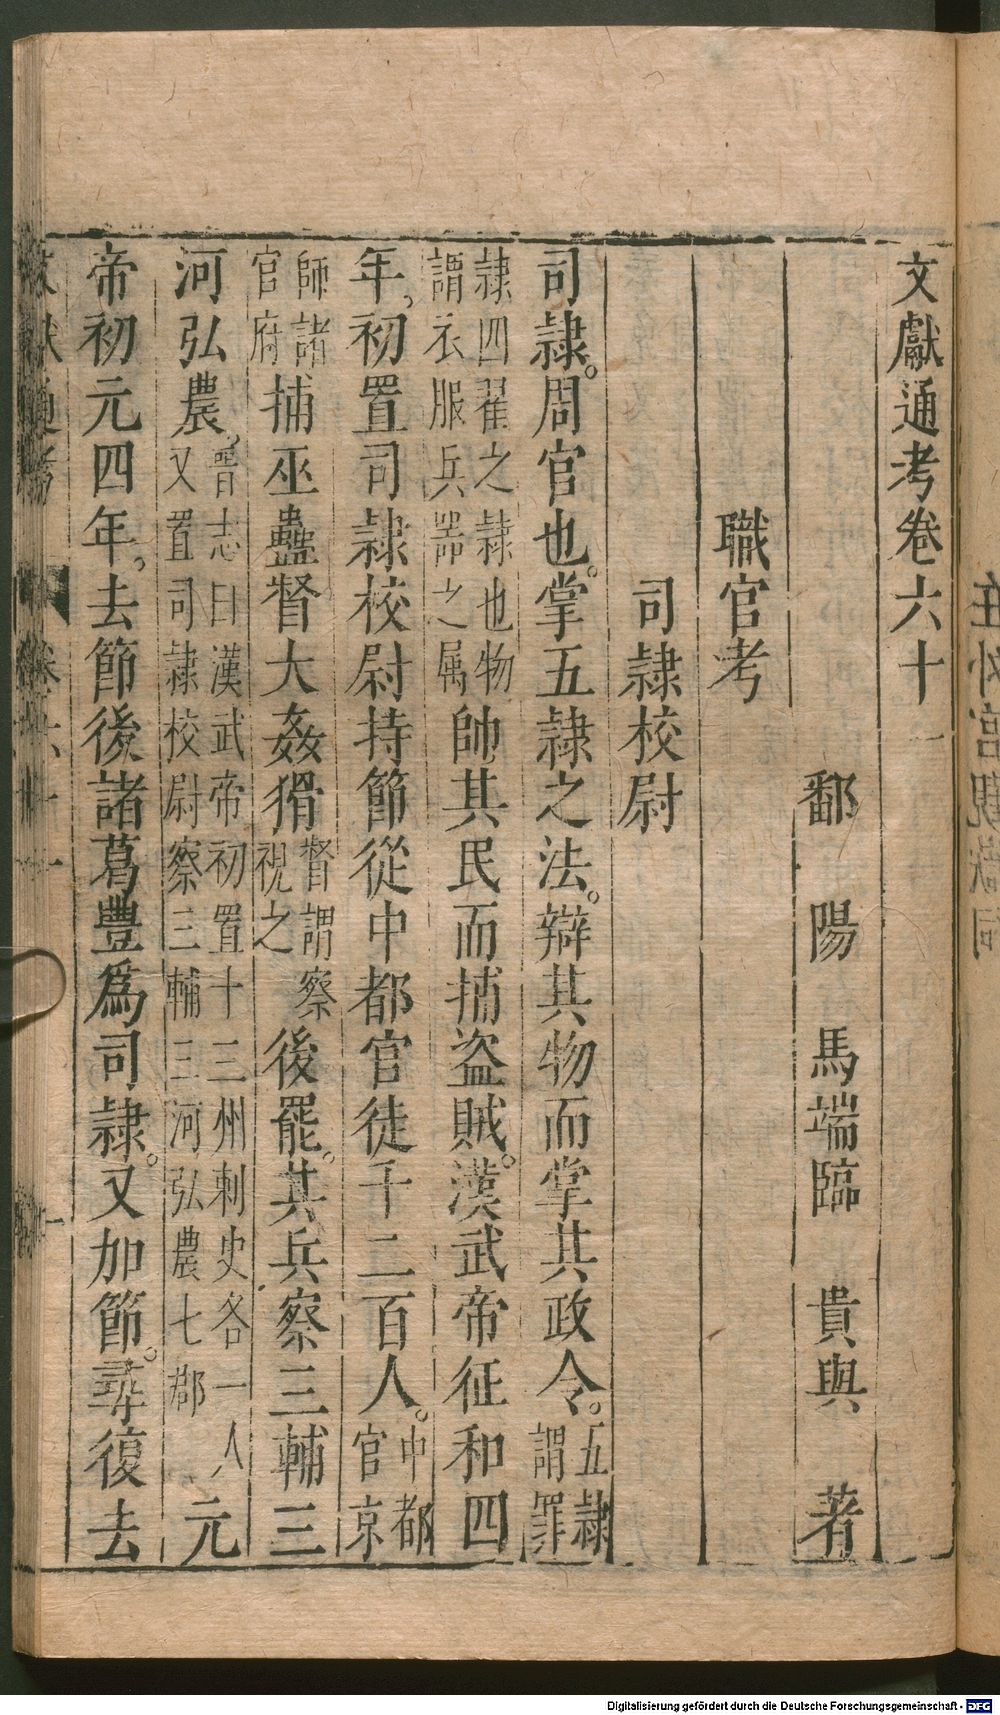 文獻通考卷六十一
鄱陽馬端臨貴與著
職官考
司隸校尉
司隸。周官也。掌五隸之法。辯其物而掌其政令。五隸謂罪
隸四翟之隸也物謂衣服兵器之属帥其民而捕盜賊。漢武帝征和四
年。初置司隸校尉持節從中都官徒千二百人。中都官京
師諸官府捕巫蠱督大姦猾督謂察視之後罷。其兵察三輔三
河弘農。晉志曰漢武帝初置十三州刺史各一人又置司隸校尉察三輔三河弘農七郡元
帝初元四年。去節後諸葛豐爲司隸。又加節。尋復去
卷六十一
Digitalisierung gefördert durch die Deutsche Forschungsgemeinschaft - DFG